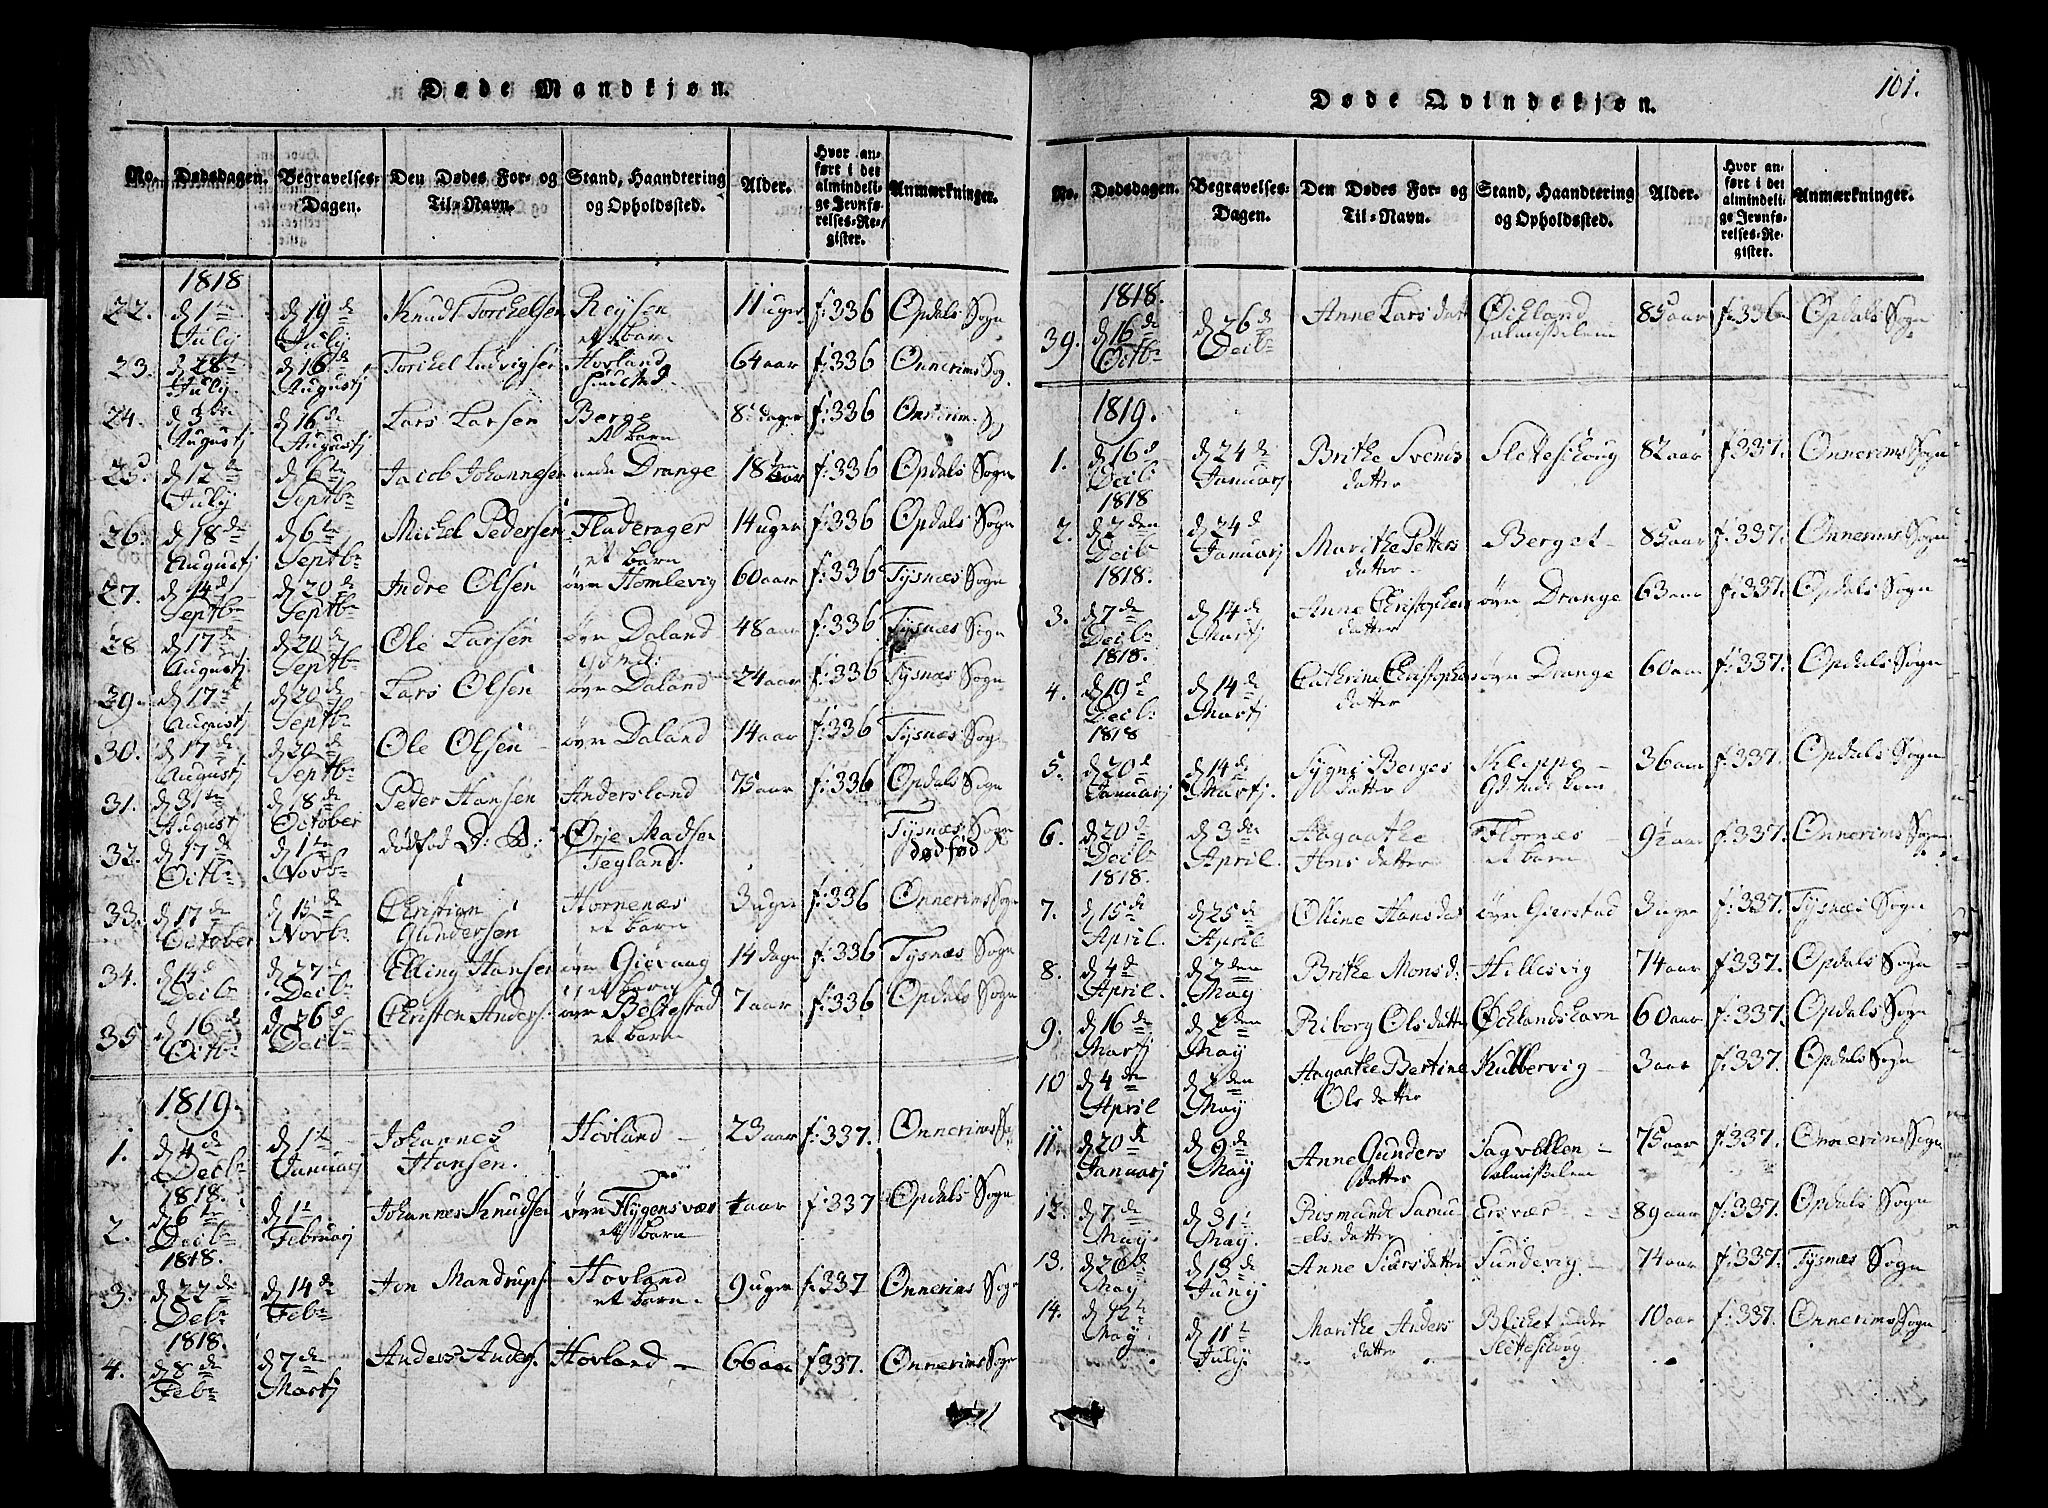 Døde Mandkjøn.
No. Dødsdagen. Begravelses-Dagen. Den Dødes For- og Til-Navn. Stand, Haandtering og Opholdssted. Alder. Hvor anført i det almindelige Jevnførelses-Register. Anmærkninger.
1818
22. d 1te July d 19de July Knudt Torchelsen Reysen et barn 11 uger f: 336 Opdals Sogn
23. d 28de July d 16de Augustj Torchel Ludvigsen Hovland 64 aar f: 336 Onnerims Sog.
24. d 3de Augustj d 16de Augustj Lars Larsen Berge et barn 8 dager f: 336 Onnerim. Sg
25. d 12te July d 6te Septbr Jacob Johannesen nede Drange 18 aar f: 336 Opdals Sogn
26. d 18de Augustj d 6te Septbr Michel Pedersen Fladerager et barn 14 uger f: 336 Opdals Sogn
27. d 14de Septbr d 20de Septbr Andre Olsen øvr Hemlevig 60 aar f: 336 Tysnæs Sogn
28 d 17de Augustj d 20de Septbr Ole Larsen øvr Daland gdmd: 48 aar f: 336 Tysnæs Sogn
29. d 17de Augustj d 20de Septbr Lars Olsen øvr Daland 24 aar f: 336 Tysnæs Sogn
30. d 17de Augustj d 20de Septbr Ole Olsen øvr Daland 14 aar f: 336 Tysnæs Sogn
31. d 31te August d 18de October Peder Hansen Andersland 75 aar f: 336 Opdals Sogn
32. d 17de Octbr d 1te Novbr dødfød D: B: Ørje Madsen Tegland. Tysnæs Sogn dødfød
33. d 17de October d 15de Novbr Christian Gundersen Hornenæs et barn 3 uger f: 336 Onnerims Sogn
34. d 14d Decbr d 27de Decbr Elling Hansen øvr Gievaag et barn 14 dage f: 336 Tysnæs Sogn
35. d 16de Octbr d 26de Decbr Christen Anders. øvr Beltestad et barn 7 aar f: 336 Opdals Sogn
1819.
1. d 4de Decbr 1818. d 1te Januarj Johannes Hansen. Hovland 23 aar f: 337. Onnerims Sog
2. d 6te Decbr 1818. d 1te Februarj Johannes Knudsen øvr Flygensvær et barn aar f: 337 Opdals Sogn
3. d 22de Debr 1818. d 14de Febr Jon Mandrups Hovland et barn 9 uger f: 337 Onnerims Sogn
4. d 8de Febr d 7de Martj Anders Anders. Hovland 66 aar f 337. Onnerims Sogn
101.
Døde Qvindekjøn.
No. Dødsdagen. Begravelses-Dagen. Den Dødes For- og Til-Navn. Stand, Haandtering og Opholdssted. Alder. Hvor anført i det almindelige Jevnførelses-Register. Anmærkninger.
1818.
39. d 16de Octbr d 26de Decbr Anne Lars datt Øchland 85 aar f: 336 Opdals Sogn
1819.
1. d 16d Decbr 1818 d 24de Januarj Brithe Svends datter Sletteschoug 82 aar f: 337. Onnerims Sogn
2. d 2den Decbr 1818. d 24d Januarj Marithe Petters datter Berget 85 aar f: 337. Onnerims Sogn
3. d 7de Decbr 1818. d 14de Martj Anne Christophers datter øvr Drange 63 aar f: 337. Opdals Sogn
4. d 19de Decbr 1818 d 14de Martj Cathrine Christophers datter øvr Drange 60 aar f: 337. Opdals Sogn
5. d 20d Januarj d 14de Martj. Sygni Berges datter Kleppe 36 aar f: 337. Opdals Sogn
6. d 20de Decbr 1818. d 3die April. Aagaathe Jons datter Flornæs et barn 9½ aar f: 337. Onnerims Sogn
7. d 15de April. d 25de April Olline Hansdat øvr Gierstad 3 uger f: 337. Tysnæs Sogn
8. d 4d April. d 2den May Brithe Monsd: Hillesvig 74 aar f: 337. Opdals Sogn
9. d 16de Martj d 2den May Riborg Olsdatter Øchlandshavn 60 aar f: 337. Opdals Sogn
10 d 4de April d 2den May Aagaathe Bertine Ols datter Kulbervig 3 aar f: 337. Opdals Sogn
11. d 20de Januarj d 9de May Anne Gunders datter Sagvellen 75 aar f: 337. Onnerims Sogn
12. d 7de May. d 31t May. Rosmunde Samuels datter Ersvær 89 aar f: 337. Opdals Sogn
13. d 20de May d 13de Juny Anne Siursdatter Sundevig 74 aar f: 337. Tysnæs Sogn
14. d 12te May. d 11te July. Marithe Anders datter Blichet under Sletteschoug 10 aar f: 337. Onnerims Sogn